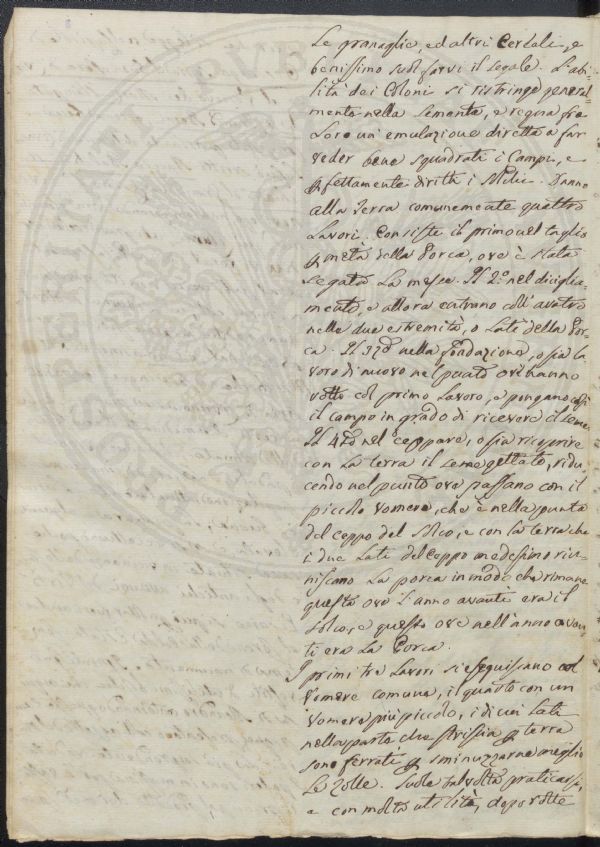 Le granaglie, ed altri Cereali, e
benissimo suol farvi il segale. L'abi-
lità dei Coloni si ristringe general-
mente nella Sementa, e regna fra
Loro un'emulazione diretta a far
veder bene squadrati i Campi, e
pfettamente diritti i Solchi. Danno
alla Terra comunemente quattro
Lavori. Consiste il primo nel taglio
p metà della Porca, ove è stata
segata La messe. Il 2.º nel
mento, e allora entrano coll'aratro
nelle due estremità, o Lati della Por-
ca. Il 3zo nella fondazione, o sia la
voro di nuovo nel punto ove hanno
rotto col primo Lavoro, e pongono così
il campo in grado di ricevere il seme
Il 4to nel ceppare, o sia ricoprire
con La terra il seme gettato, ridu-
cendo nel punto ove passano con il
piccolo vomere, che è nella punta
del ceppo del Solco, e con la terra che
i due Lati del Ceppo medesimo riu-
niscano La porca in modo che rimane
questa ove L'anno avanti era il
Solco, e questo ove nell'anno avan-
ti era La Porca.
I primi tre Lavori si eseguiscano col
Vomere comune, il quarto con un
vomere più piccolo, i di cui Lati
nella parte che striscia p terra
sono ferrati p sminuzzarne meglio
Le Zolle. Suole talvolta praticarsi,
e con molta utilità, dopo